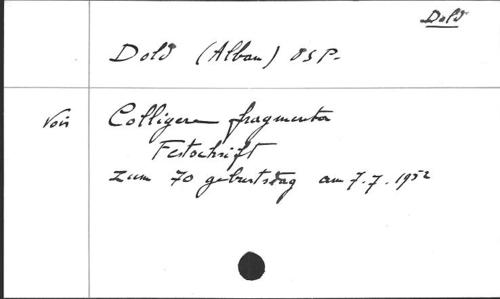 Dold
Dold (Alban) OSP-
Voir Colligere fragmenta
Festschrift
zum 70 geburtstag am 7.7.1952